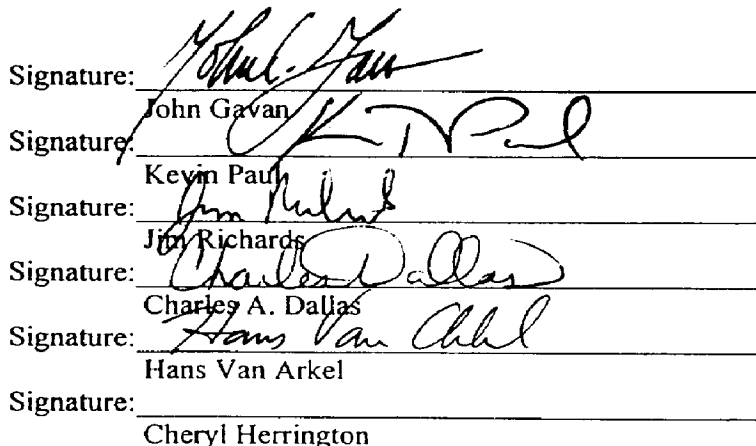 Signature: John C. Gavan
John Gavan
Signature: K Paul
Kevin Paul
Signature: Jim Richards
Jim Richards
Signature: Charles Dallas
Charles A. Dallas
Signature: Hans Van Arkel
Hans Van Arkel
Signature:
Cheryl Herrington